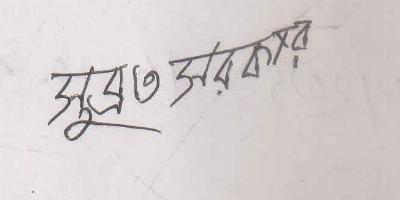 সুব্রত সরকার